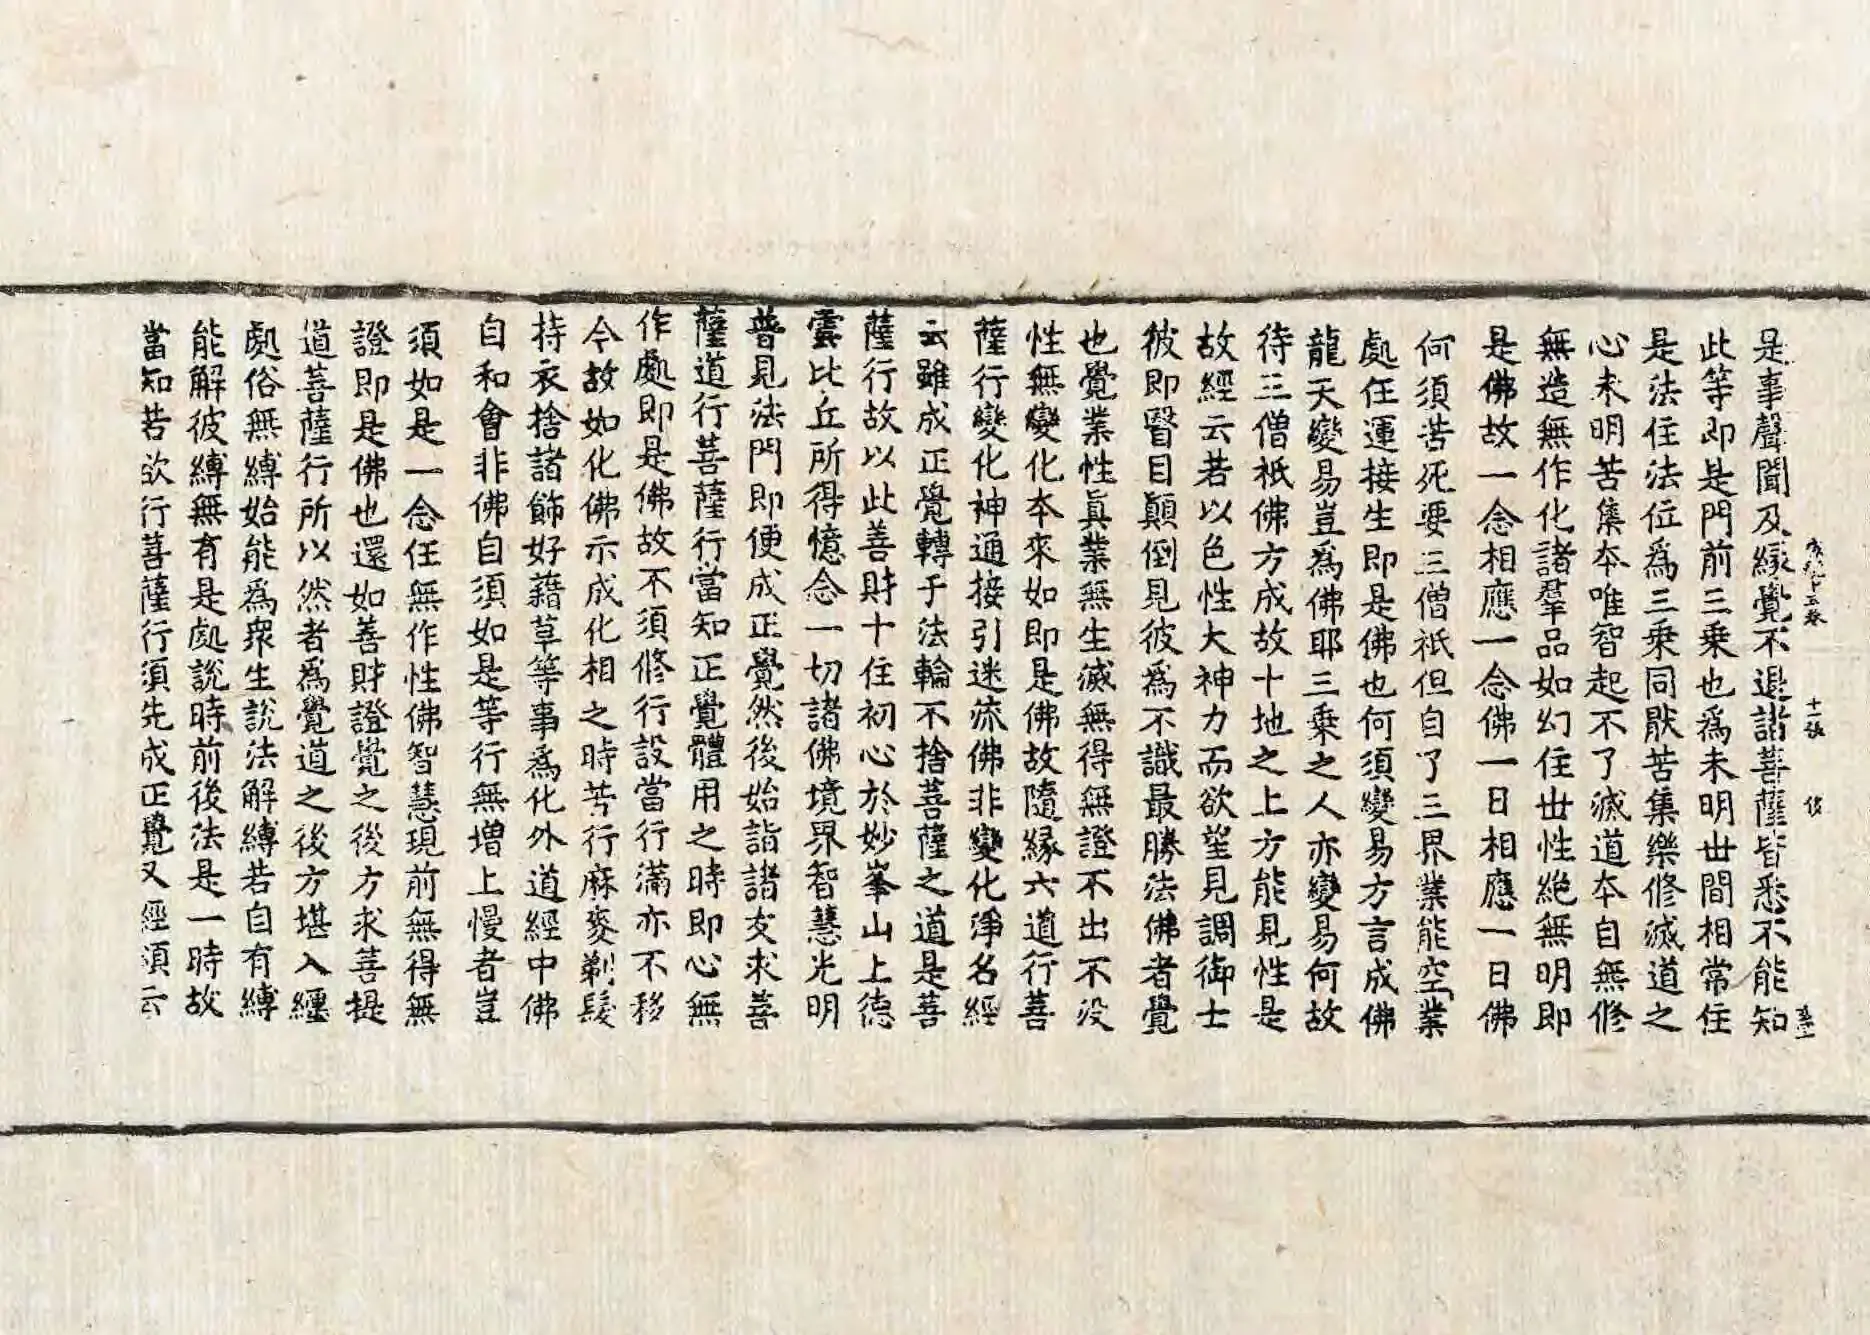 是事聲聞及緣覺不退諸菩薩皆悉不能知
此等即是門前三乘也為未明世間相常住
是法住法位為三乘同猒苦集樂修滅道之
心未明苦集本唯智起不了滅道本自無修
無造無作化諸羣品如幻住世性絕無明即
是佛故一念相應一念佛一日相應一日佛
何須苦死要三僧祇但自了三界業能空業
處任運接生即是佛也何須變易方言成佛
龍天變易豈為佛耶三乘之人亦變易何故
待三僧祇佛方成故十地之上方能見性是
故經云若以色性大神力而欲望見調御士
彼即瞖目顛倒見彼為不識最勝法佛者覺
也覺業性真業無生滅無得無證不出不沒
性無變化本來如即是佛故隨緣六道行菩
薩行變化神通接引迷流佛非變化淨名經
云雖成正覺轉于法輪不捨菩薩之道是菩
薩行故以此善財十住初心於妙峯山上德
雲比丘所得憶念一切諸佛境界智慧光明
普見法門即便成正覺然後始詣諸友求菩
薩道行菩薩行當知正覺體用之時即心無
作處即是佛故不須修行設當行滿亦不移
今故如化佛示成化相之時苦行麻麥剃髮
持衣捨諸飾好藉草等事為化外道經中佛
自和會非佛自須如是等行無增上慢者豈
須如是一念任無作性佛智慧現前無得無
證即是佛也還如善財證覺之後方求菩提
道菩薩行所以然者為覺道之後方堪入纏
處俗無縛始能為衆生說法解縛若自有縛
能解彼縛無有是處說時前後法是一時故
當知若欲行菩薩行須先成正覺又經頌云